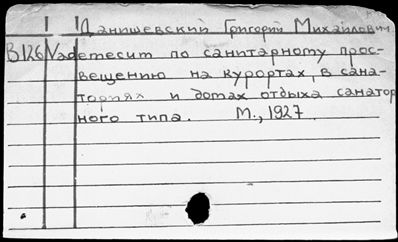 Данишевский Григорий Михайлович
В126 Vademecum по санитарному прос-
вещению на курортах, в сана-
ториях и домах отдыха санатор
ного типа. М., 1927